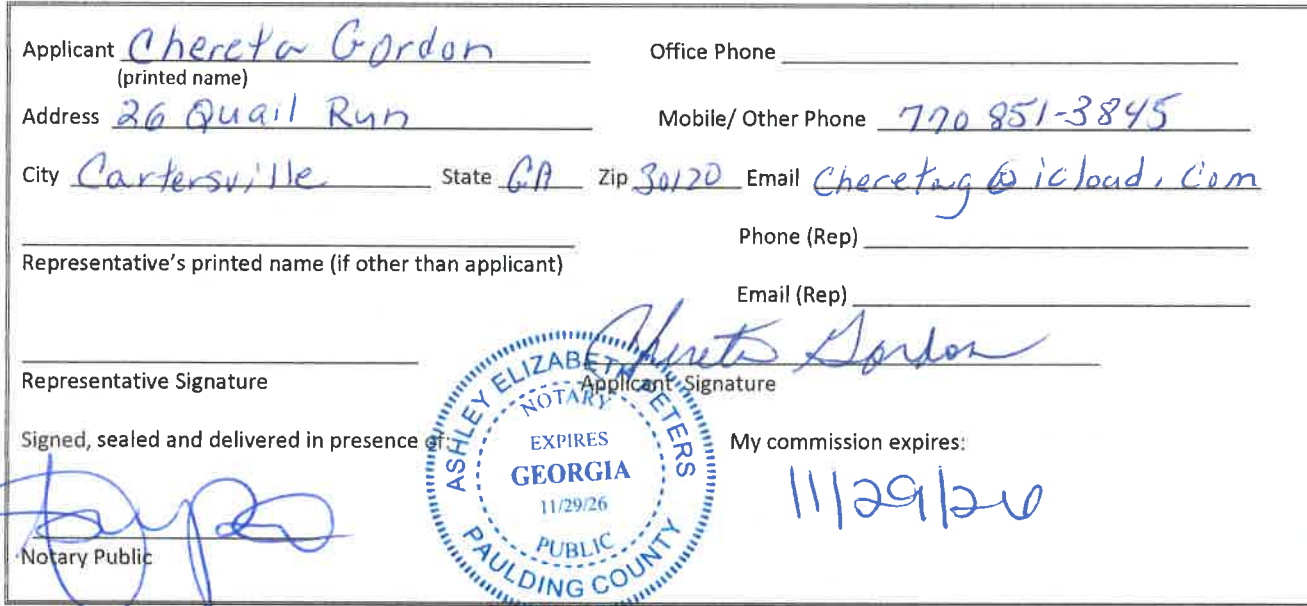 Applicant Chereta Gordon Office Phone
(printed name)
Address 26 Quail Run Mobile/ Other Phone 770 851-3845
City Cartersville State GA Zip 30120 Email Cheretag@icloud.com
Phone (Rep)
Representative's printed name (if other than applicant)
Email (Rep)
Chereta Gordon
Representative Signature Applicant Signature
Signed, sealed and delivered in presence of: My commission expires:
11/29/26
Notary Public
ASHLEY ELIZABETH PETERS
NOTARY
EXPIRES
GEORGIA
11/29/26
PUBLIC
PAULDING COUNTY